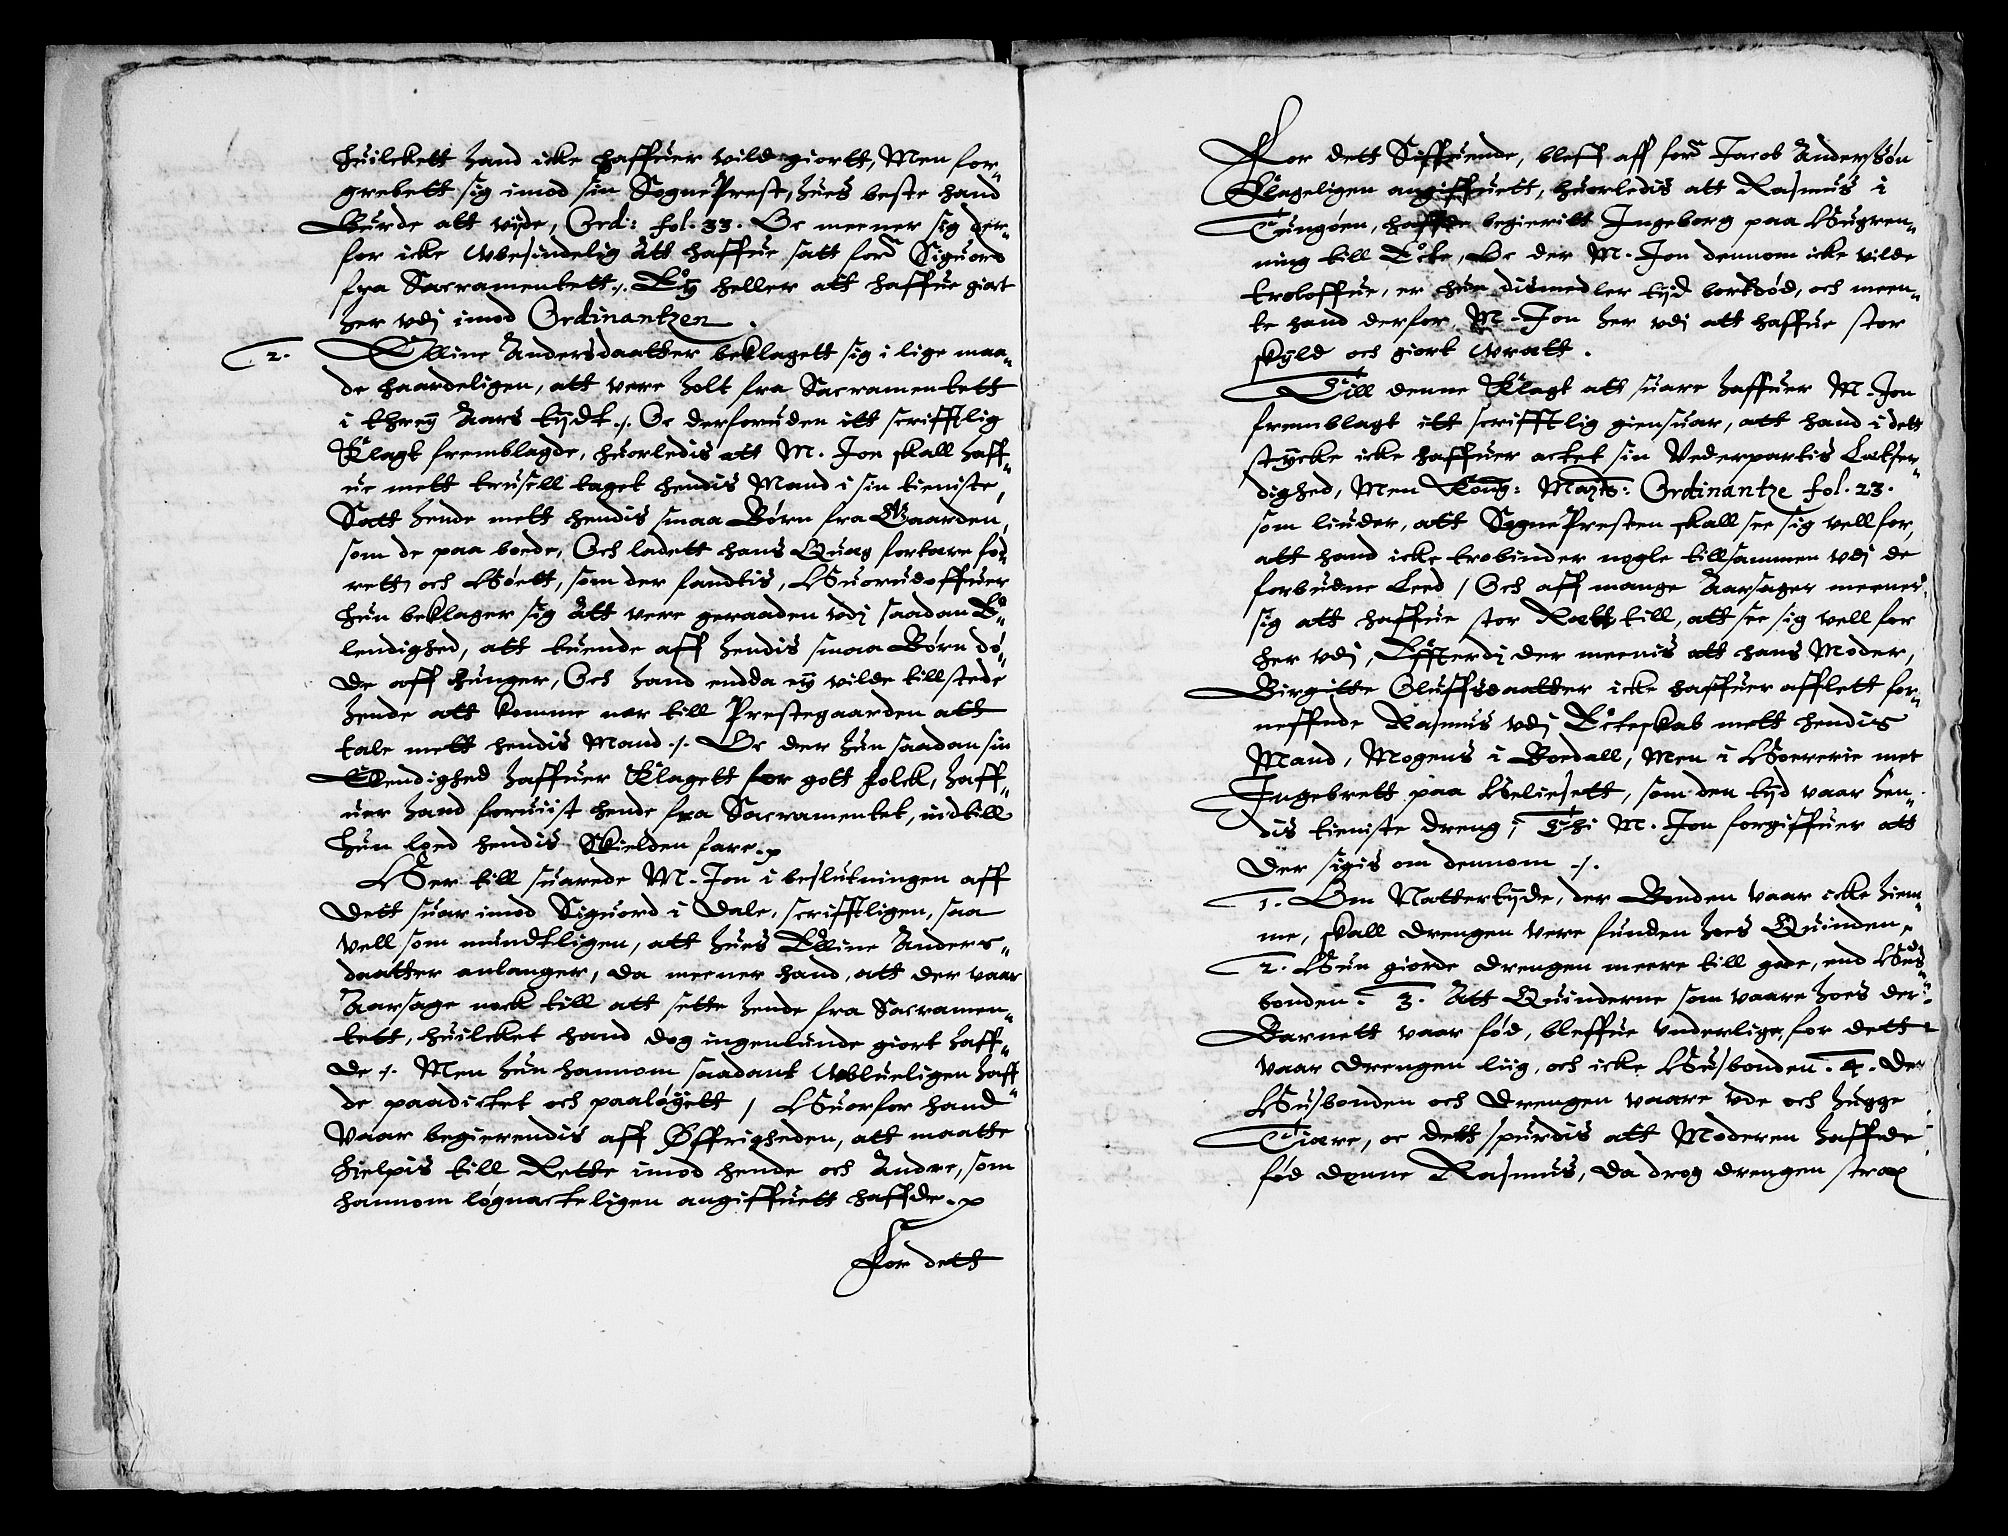 huilckett hand icke haffuer vild giortt, Men for„
grebett sig imod sin SognePrest, hues beste hand
Burde att vijde, Ord: fol. 33. Oc meener sig der„
for icke wbesindelig att haffue satt ford Siguord
fra Sacramentett ./. Eÿ heller att haffue giort
her vdj imod Ordinantzen .
2. Elline Andersdaatter beklagett sig i lige maa„
de haardeligen, att vere holt fra Sacramentett
i threÿ Aars tijdt ./. Oc derforuden itt scrifftlig
Klagt fremblagde, huorledis att M. Jon skall haff„
ue mett trusell taget hendis Mand i sin tieniste,
Satt hende mett hendis smaa Børn fra Gaarden,
som de paa boede, Och ladett hans Quæg fortære fo„
rett, och Høett, som der fandtis, Huorudoffuer
hun beklager sig att vere geraaden vdj saadan E„
lendighed, att tuende aff hendis smaa Børn dø„
de aff hunger, Och hand endda eÿ vilde tillstede
hende att komme nær till Prestegaarden att
tale mett hendis Mand ./. Oc der hun saadan sin
Ellendighed haffuer Klagett for gott folck, haff„
uer hand foruist hende fra Sacramentet, indtill
hun loed hendis Skielden fare.
Her till suarede M. Jon i beslutningen aff
dett suar imod Siguord i Dale, scrifftligen, saa
vell som mundtligen, att hues Elline Anders„
daatter anlanger, da meener hand, att der vaar
Aarsage nock till att sette hende fra Sacramen„
tett, huilcket hand dog ingenlunde giort haff„
de ./. Men hun hannom saadant wblueligen haff„
de paadictet och paaløÿett / Huorfor hand
vaar begierendis aff Øffrigheden, att maatte
hielpis till Rette imod hende och Andre, som
hannom løgnackteligen angiffuett haffde.
For dett
For dett Siffuende, bleff aff ford Jacob Anderssøn
Klageligen angiffuett, huorledis att Rasmus i
Tungøen, haffde begieritt Ingeborg paa Hugren„
ning till Ecte, Oc der M. Jon dennom icke vilde
troloffue, er hun dismedler tijd bortdød, och meen„
te hand derfor M. Jon her vdj att haffue stor
skÿld och giort wratt .
Till denne Klagt att suare haffuer M. Jon
fremblagt itt scrifftlig giensuar, att hand i dett
stÿcke icke haffuer actet sin Vederpartis Lætfer„
dighed, Men Kong: Mayts: Ordinantze fol. 23.
som liuder, att SognePresten skall see sig vell for,
att hand icke trobinder nogle tillsammen vdj de
forbudne Leed / Och aff mange Aarsager meener
sig att haffue stor Rætt till, att see sig vell for
her vdj, Effterdj der meenis att hans Moder,
Birgitte Oluffsdaatter icke haffuer afflett for„
neffnde Rasmus vdj Ecteskab mett hendis
Mand, Mogens i Boedall, Men i Hoererie met
Ingebrett paa Heliesett, som den tijd vaar hen„
dis tieniste dreng; Thi M. Jon forgiffuer att
der sigis om dennom ./.
1. Om Nattertijde, der Bonden vaar icke hiem„
me, skall drengen vere funden hoes Quinden.
2. Hun giorde drengen meere till gode, end Hus„
bonden. 3. Att Quinderne som vaare hoes der
Barnett vaar fød, bleffue vnderlige, for dett
vaar drengen liig, och icke Husbonden. 4. Der
Husbonden och drengen vaare vde och hugge
Tiære, oc dett spurdis att Moderen haffde
fød denne Rasmus, da drog drengen strax